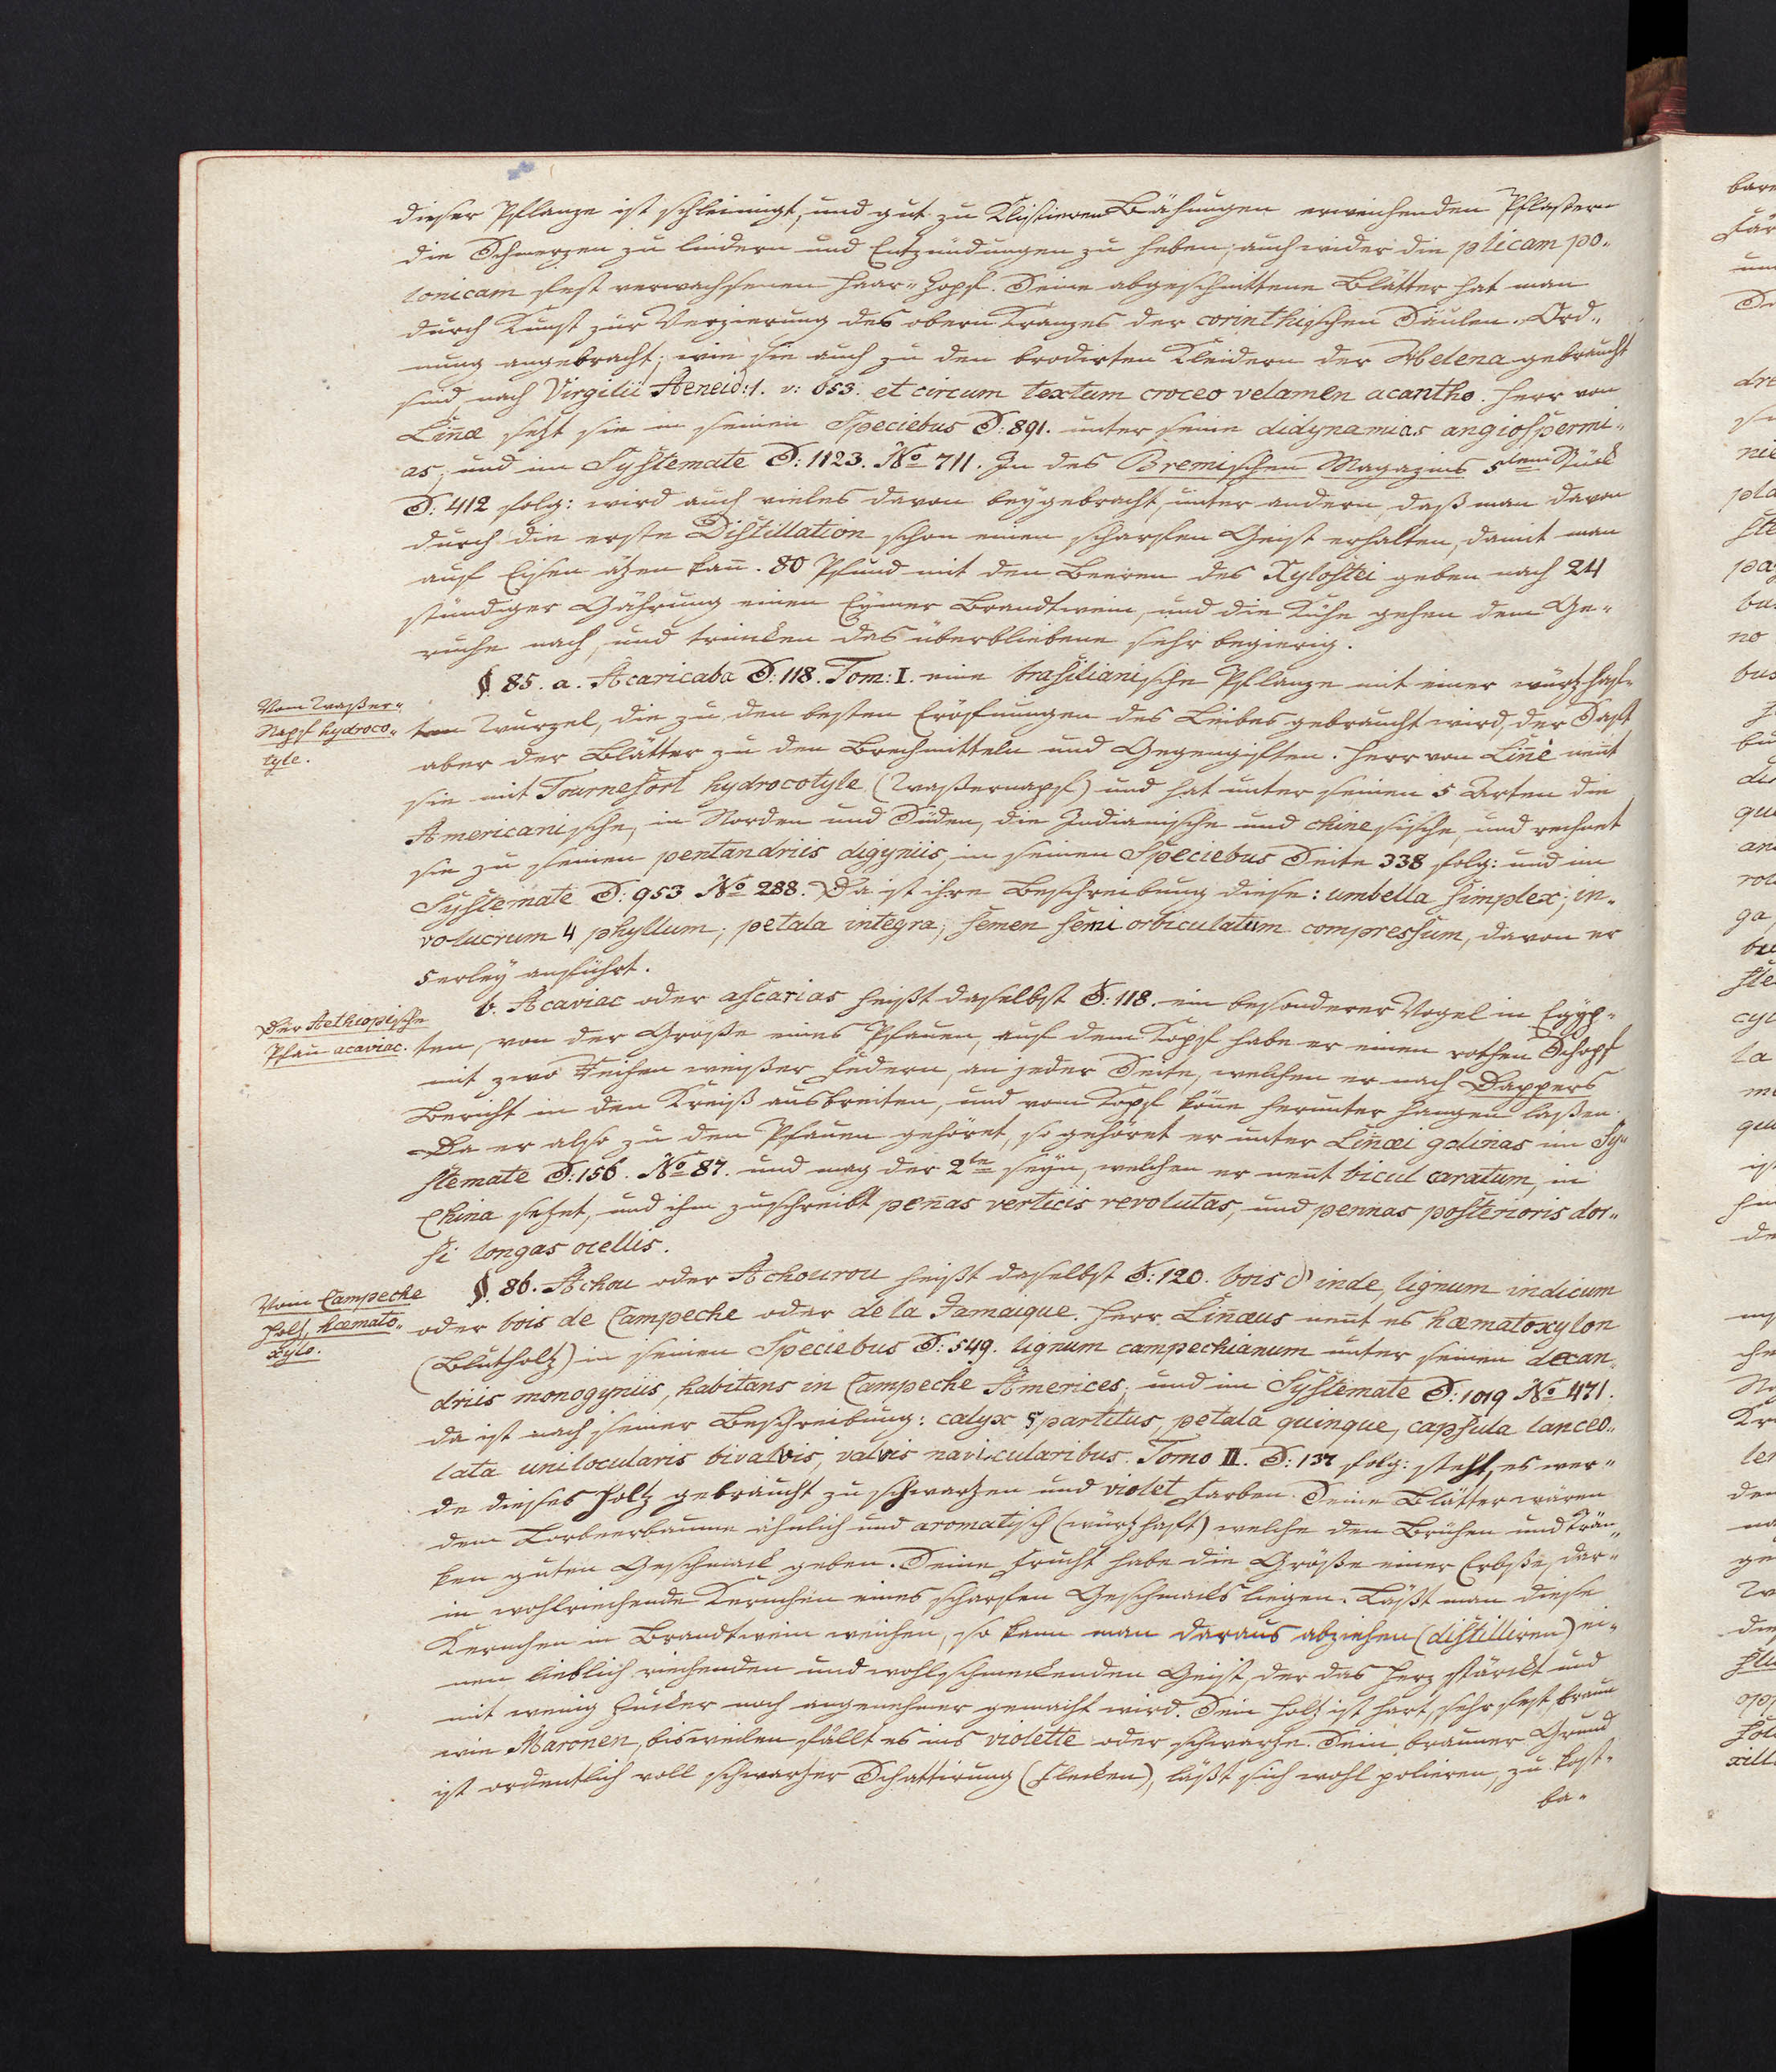 dieser Pflanze ist schleimigt, und gut zu Klistieren Bähungen erweichenden Pflastern
die Schmerzen zu lindern und Entzündungen zu heben, auch wider die plicam po„
lonicam fest verwachsenen Haar„Zopf. Seine abgeschnittene Blätter hat man
durch Kunst zur Verzierung des obern Kranzes der corinthischen Säulen. Ord„
nung angebracht; wie sie auch zu den brodirten Kleidern der Helena gebraucht
sind nach Virgilii Aeneid: 1. v: 653. et circum textum croceo velamen acantho. Herr von
Linæ setzt sie in seinen Speciebus S: 891. unter seine didynamias angiospermi„
as, und im Systemate S: 1123. No 711. In des Bremischen Magazins 5tem Stück
S: 412 folg: wird auch vieles davon beygebracht, unter andern, daß man davon
durch die erste Distillation schon einen scharfen Geist erhalten, damit man
auf Eisen ätzen kañ. 80 Pfund mit den Beeren des Xylostei geben nach 24
stündiger Gährung einen Eymer Brandtwein, und die Kühe gehen dem Ge„
ruche nach, und trinken das überbliebene sehr begierig.
Vom Waßer„
Napf hydroco„
tyle.
§. 85. a. Acaricaba S: 118. Tom: I. eine brasilianische Pflanze mit einer würtzhaf„
ten Wurzel, die zu den besten Eröfnungen des Leibes gebraucht wird, der Saft
aber der Blätter zu den Brechmitteln und Gegengiften. Herr von Liñe neñt
sie mit Tournefort hydrocotyle (Waßernapf) und hat unter seinen 5 Arten die
Americanische, in Norden und Süden, die Indianische und chinesische, und rechnet
sie zu seinen pentandriis digyniis, in seinen Speciebus Seite 338 folg: und im
Systemate S: 953 No 288. Da ist ihre Beschreibung diese: umbella simplex; in„
volucrum 4 phyllum; petala integra; semen semi orbiculatum compressum, davon er
5erley anführt.
Der Aethiopische
Pfau acaviac.
b. Acaviac oder ascarias heißt daselbst S: 118. ein besonderer Vogel in Egyp„
ten, von der Größe eines Pfauen, auf dem Kopf habe er einen rothen Schopf
mit zwo Reihen weißer Federn, an jeder Seite, welchen er nach Dappers
Bericht in den Kreiß ausbreiten, und vom Kopf köñe herunter hangen laßen.
Da er also zu den Pfauen gehöret, so gehöret er unter Liñæi galinas im Sy„
stemate S: 156. No 87. und mag der 2te seyn, welchen er neñt bicul caratum, in
China setzet, und ihm zuschreibt peñas verticis revolutas, und pennas posterioris dor„
si longas ocellis.
Vom Campeche
Holtz, hæmato„
xylo.
§. 86. Achou oder Achourou heißt daselbst S: 120. bois d' inde, lignum indicum
oder bois de Campeche oder de la Jamaique. Herr Liñæus neñt es hæmatoxylon
(Blutholtz) in seinen Speciebus S: 549. lignum campechianum unter seinen decan„
driis monogyniis, habitans in Campeche Americes; und im Systemate S: 1019 No 471.
da ist nach seiner Beschreibung: calyx 5 partitus, petala quinque, capsula lanceo„
lata unilocularis bivalvis, valvis navicularibus. Tomo II. S: 137 folg: steht, es wer„
de dieses Holtz gebraucht zu schwartzen und violet Farben. Seine Blätter wären
dem Lorbeerbaume ähnlich und aromatisch (würtzhaft) welche den Brühen und Trän„
ken guten Geschmack geben. Seine Frucht habe die Größe einer Erbße, dar„
in wohlriechende Kernchen eines scharfen Geschmacks liegen. Läßt man diese
Kernchen in Brandtwein weichen, so kann man daraus abziehen (distilliren) ei„
nen lieblich riechenden und wohlschmeckenden Geist, der das Herz stärckt und
mit wenig Zucker noch angenehmer gemacht wird. Sein Holtz ist hart, sehr fest, braun
wie Maronen, bisweilen fällt es ins violette oder schwarze. Sein brauner Grund
ist ordentlich voll schwartzer Schattirung (Flecken), läßt sich wohl polieren, zu kost„
ba„